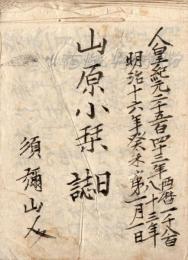 人皇紀元二千五百四十三年西暦一千八百八十三年
明治十六年癸未第一月一日
山原小栞
日誌
須彌山人